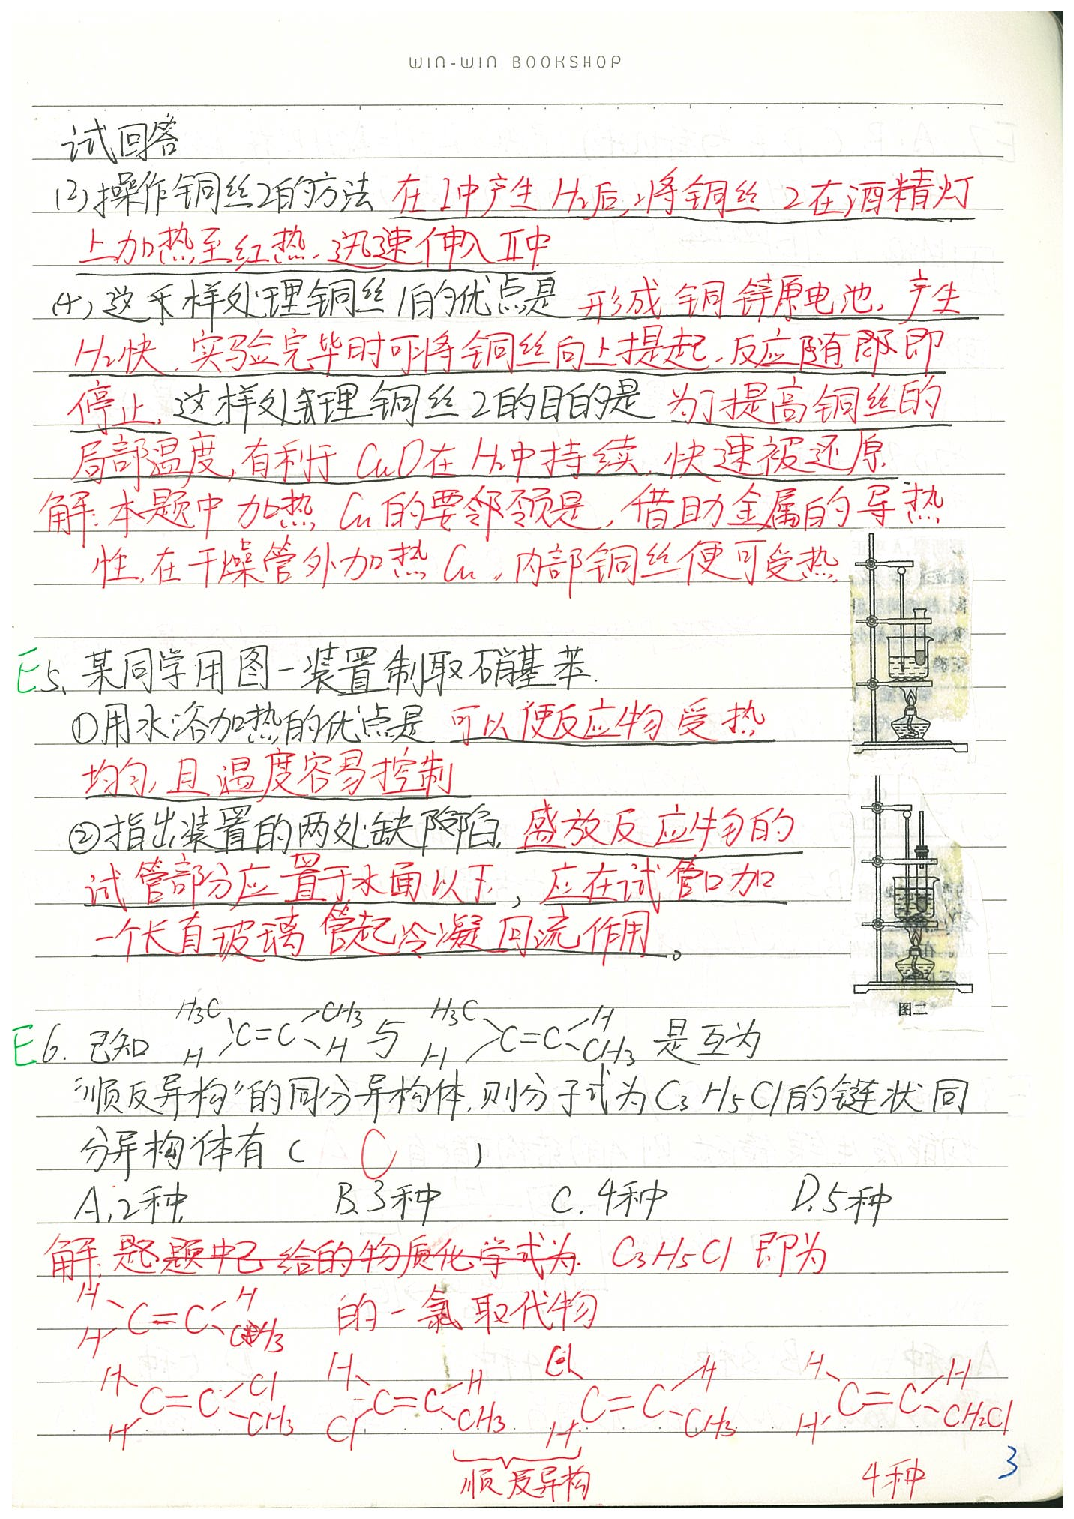 WIN-WIN BOOKSHOP
试回答
(2)操作铜丝2的方法 在1中产生H₂后,将铜丝2在酒精灯
上加热至红热,迅速伸入Ⅱ中
(4)这样处理铜丝1的优点是 形成铜锌原电池,产生
H₂快,实验完毕时可将铜丝向上提起,反应随即
停止,这样处理铜丝2的目的是 为了提高铜丝的
局部温度,有利于CuO在H₂中持续、快速被还原
解:本题中加热Cu的要领是,借助金属的导热
性,在干燥管外加热Cu,内部铜丝便可受热
E5、某同学用图一装置制取硝基苯.
①用水浴加热的优点是 可以使反应物受热
均匀,且温度容易控制
②指出装置的两处缺陷,盛放反应物的
试管部分应置于水面以下,应在试管口加
一个长直玻璃管起冷凝回流作用。
图二
E6. 已知 H₃C H C=C CH₃ H 与 H₃C H C=C H CH₃ 是互为
"顺反异构"的同分异构体,则分子式为C₃H₅Cl的链状同
分异构体有( C )
A.2种 B.3种 C.4种 D.5种
解:题中已给的物质化学式为 C₃H₅Cl 即为
H H C=C H CH₃ 的一氯取代物
H H C=C Cl CH₃ H Cl C=C H CH₃ Cl H C=C H CH₃ H H C=C H CH₂Cl
顺反异构 4种
3